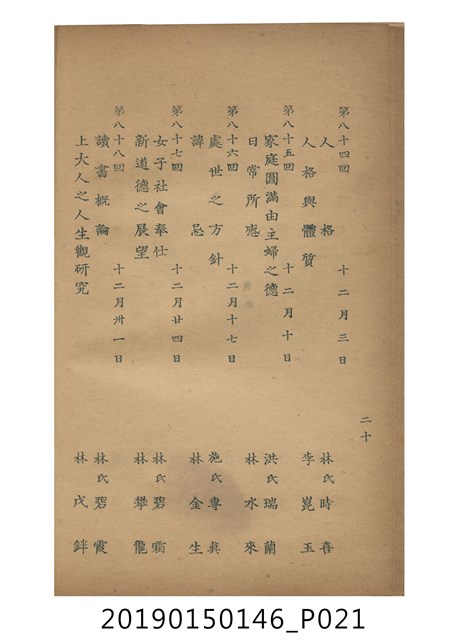 第八十四回 十二月三日
人格 林氏時喜
人格與體質 李崑玉
第八十五回 十二月十日
家庭圓滿由主婦之德 洪氏瑞蘭
日常所感 林水來
第八十六回 十二月十七日
處世之方針 施氏專真
諱忌 林金生
第八十七回 十二月廿四日
女子社會奉仕 林氏碧霜
新道德之展望 林攀龍
第八十八回 十二月卅一日
讀書概論 林氏碧霞
上大人之人生觀研究 林戍鉡
二十
20190150146_P021